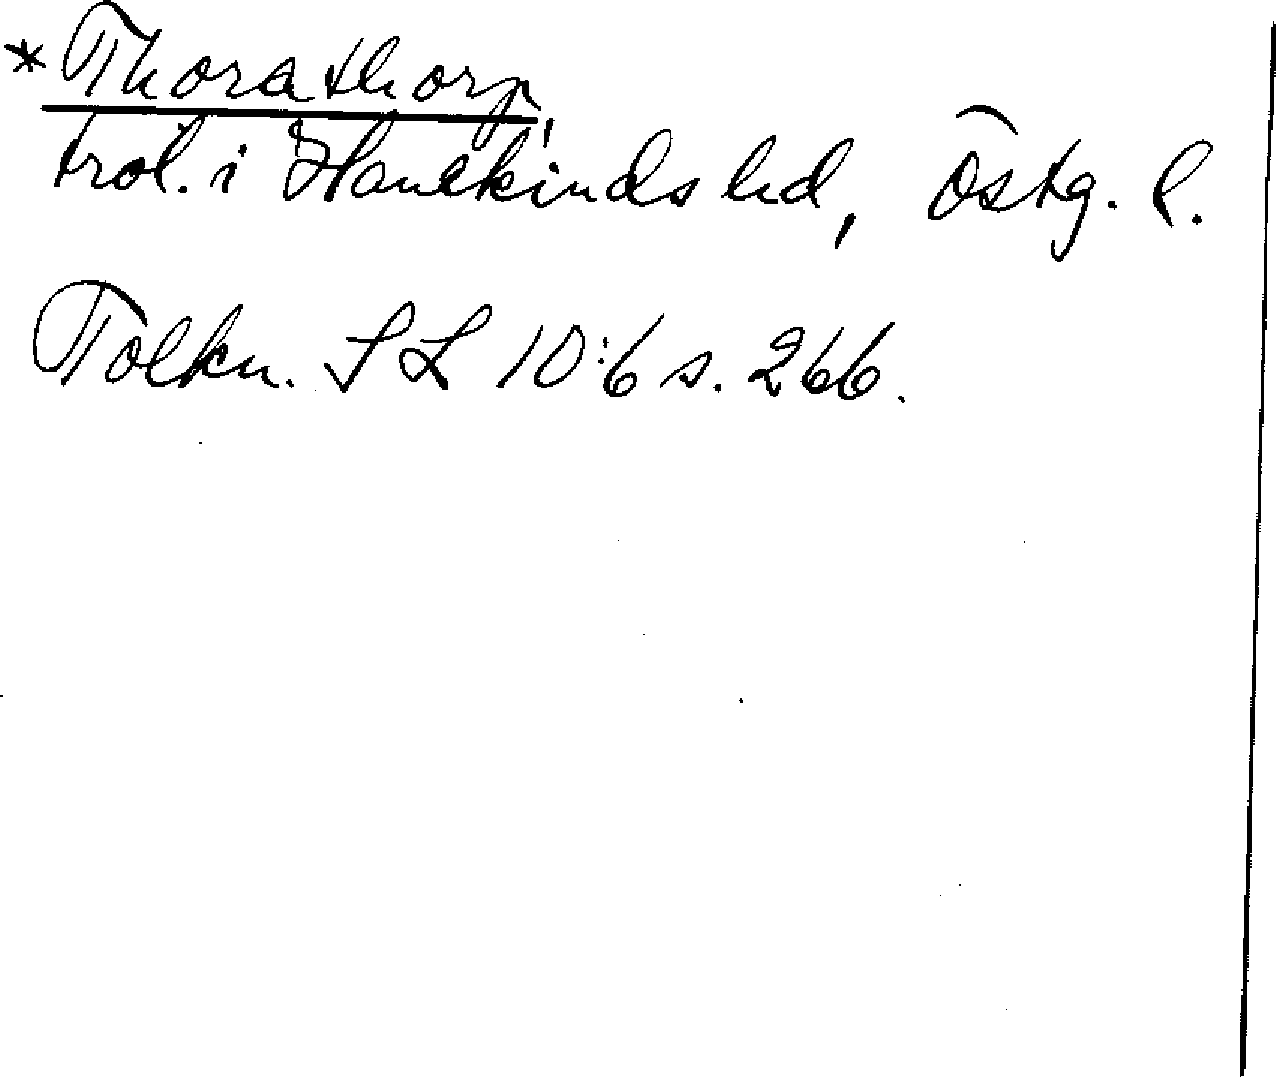 *Thorathorp,
trol. i Hanekinds hd, Östg. l.
Tolkn. SL 10:6 s. 266.